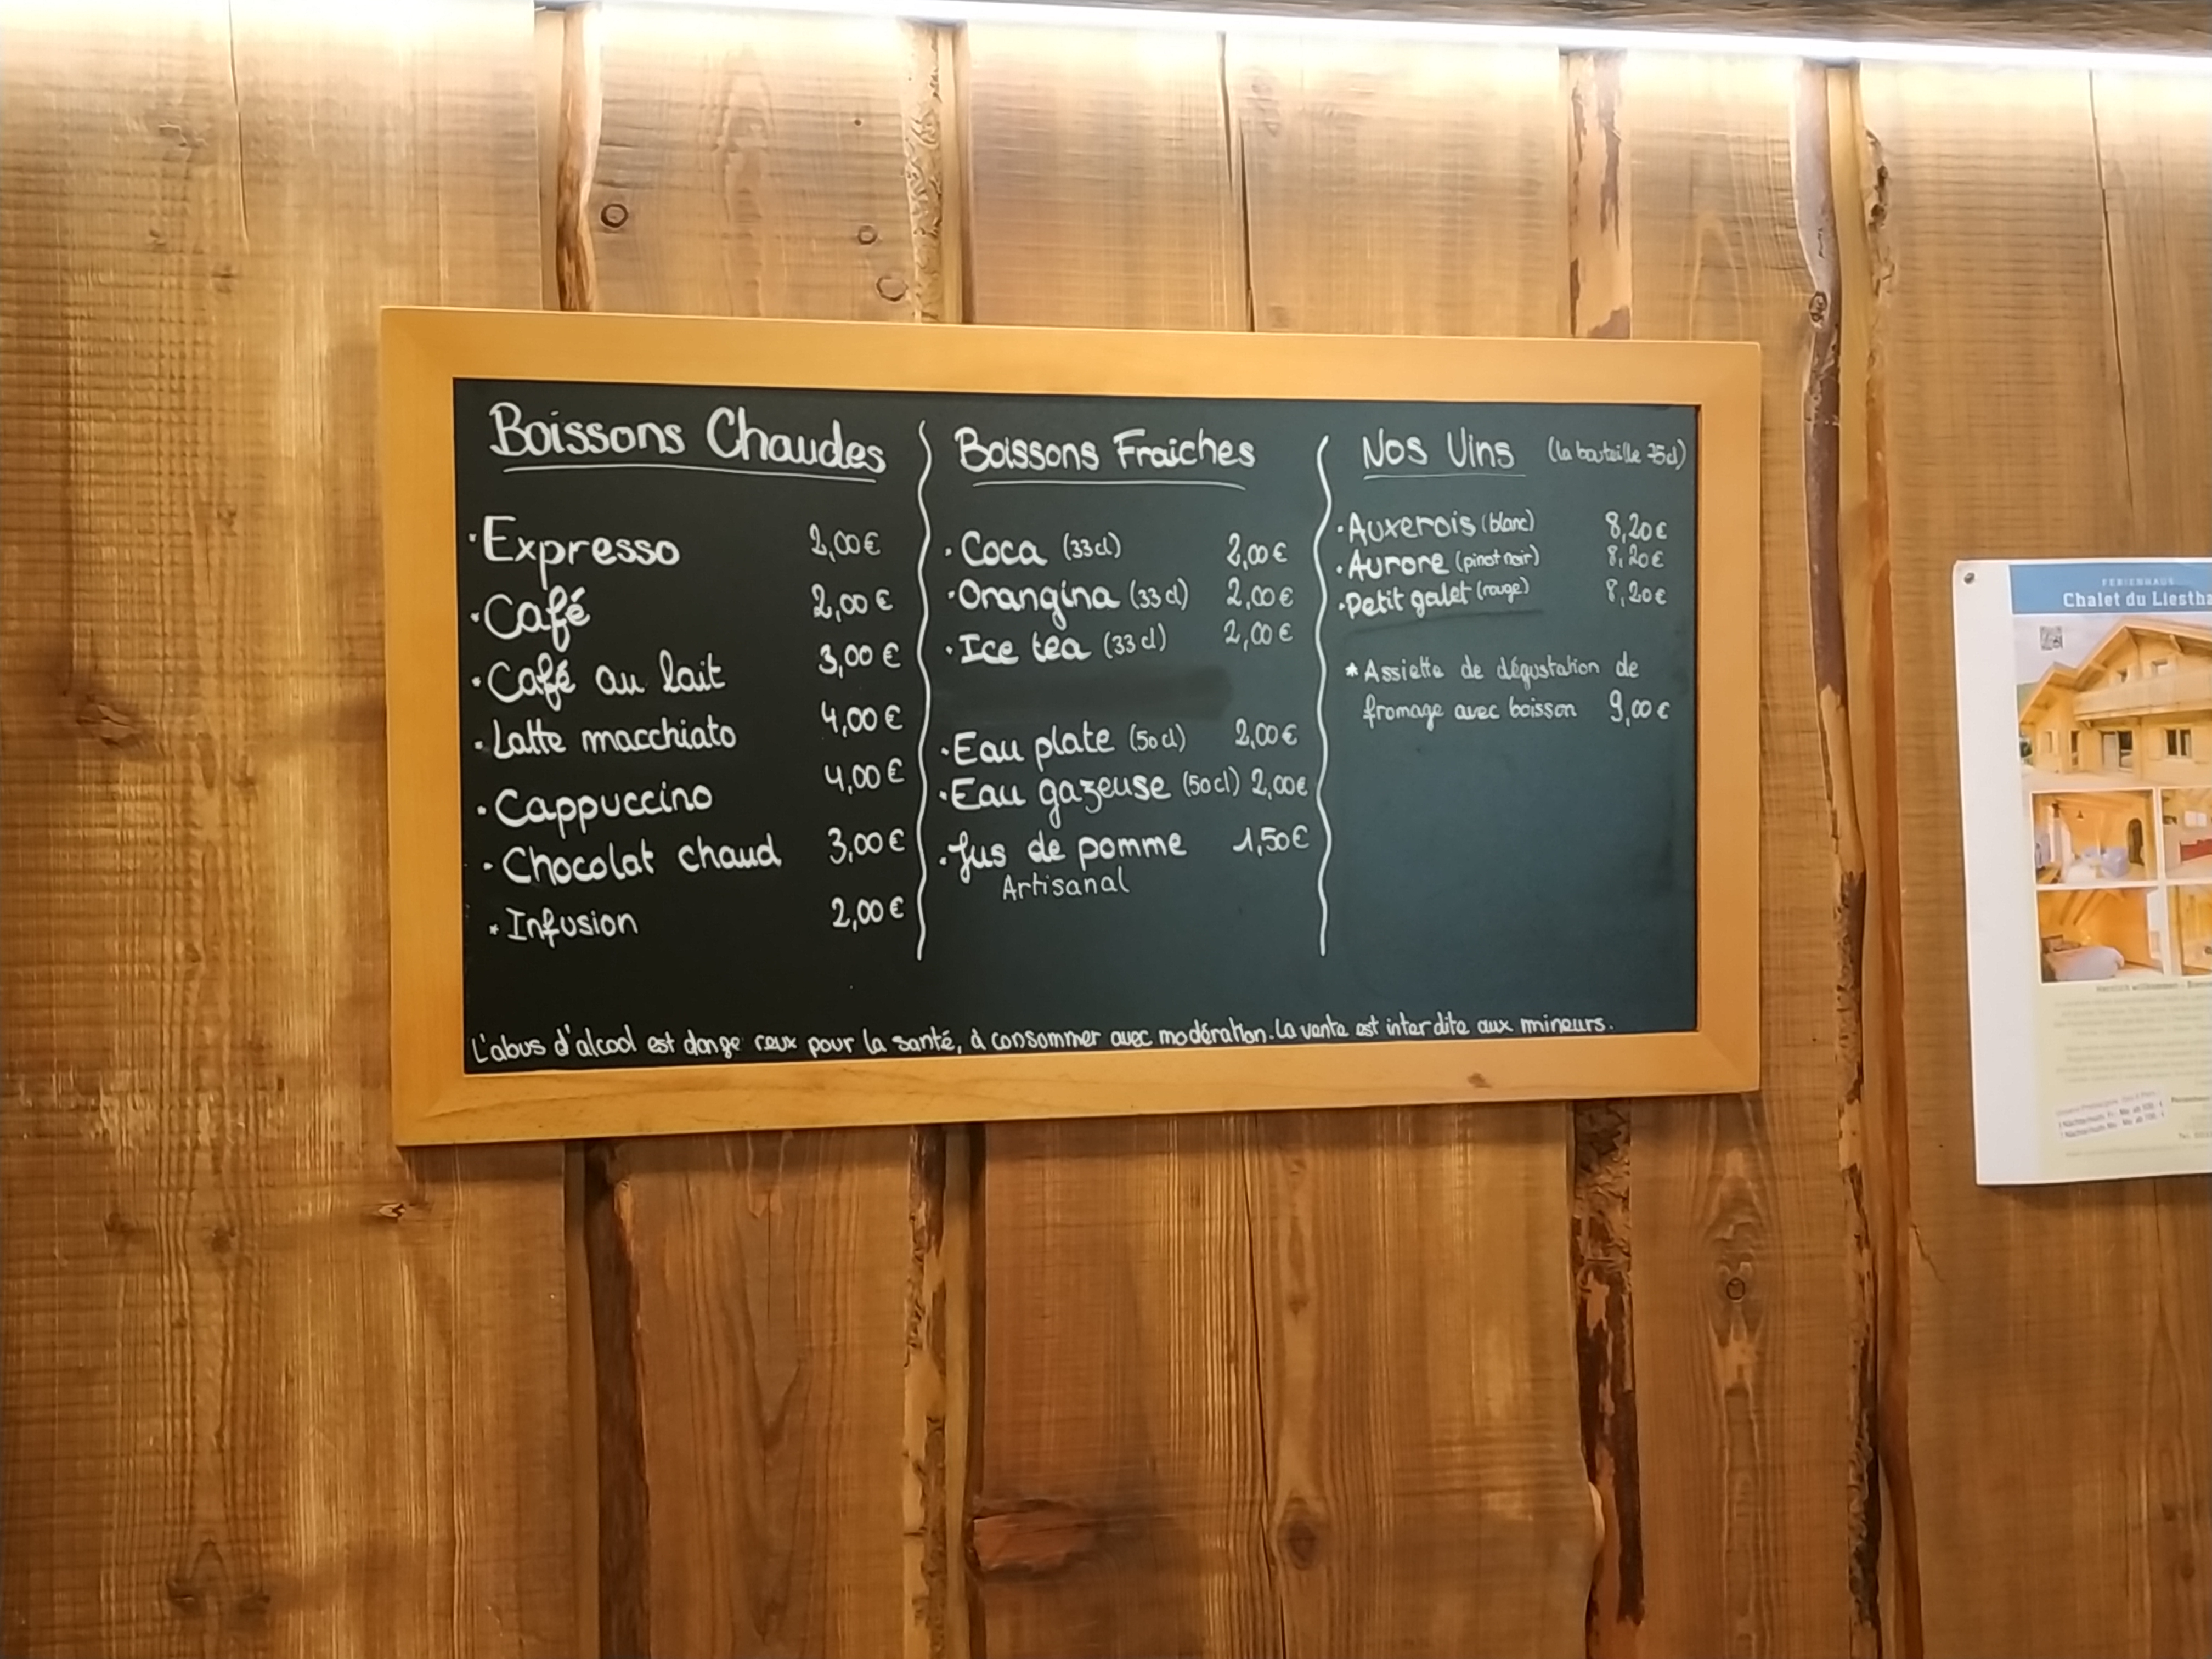 Boissons Chaudes
· Expresso 2,00€
· Café 2,00€
· Café au lait 3,00€
· Latte macchiato 4,00€
· Cappuccino 4,00€
· Chocolat chaud 3,00€
* Infusion 2,00€
Boissons Fraiches
· Coca (33cl) 2,00€
· Orangina (33cl) 2,00€
· Ice tea (33cl) 2,00€
· Eau plate (50cl) 2,00€
· Eau gazeuse (50cl) 2,00€
· Jus de pomme 1,50€
Artisanal
Nos Vins (la bouteille 75cl)
· Auxerois (blanc) 8,20€
· Aurore (pinot noir) 8,20€
· Petit galet (rouge) 8,20€
* Assiette de dégustation de
fromage avec boisson 9,00€
L'abus d'alcool est dange reux pour la santé, à consommer avec modération. La vente est inter dite aux mineurs.
FERIENHAUS
Chalet du Liestha